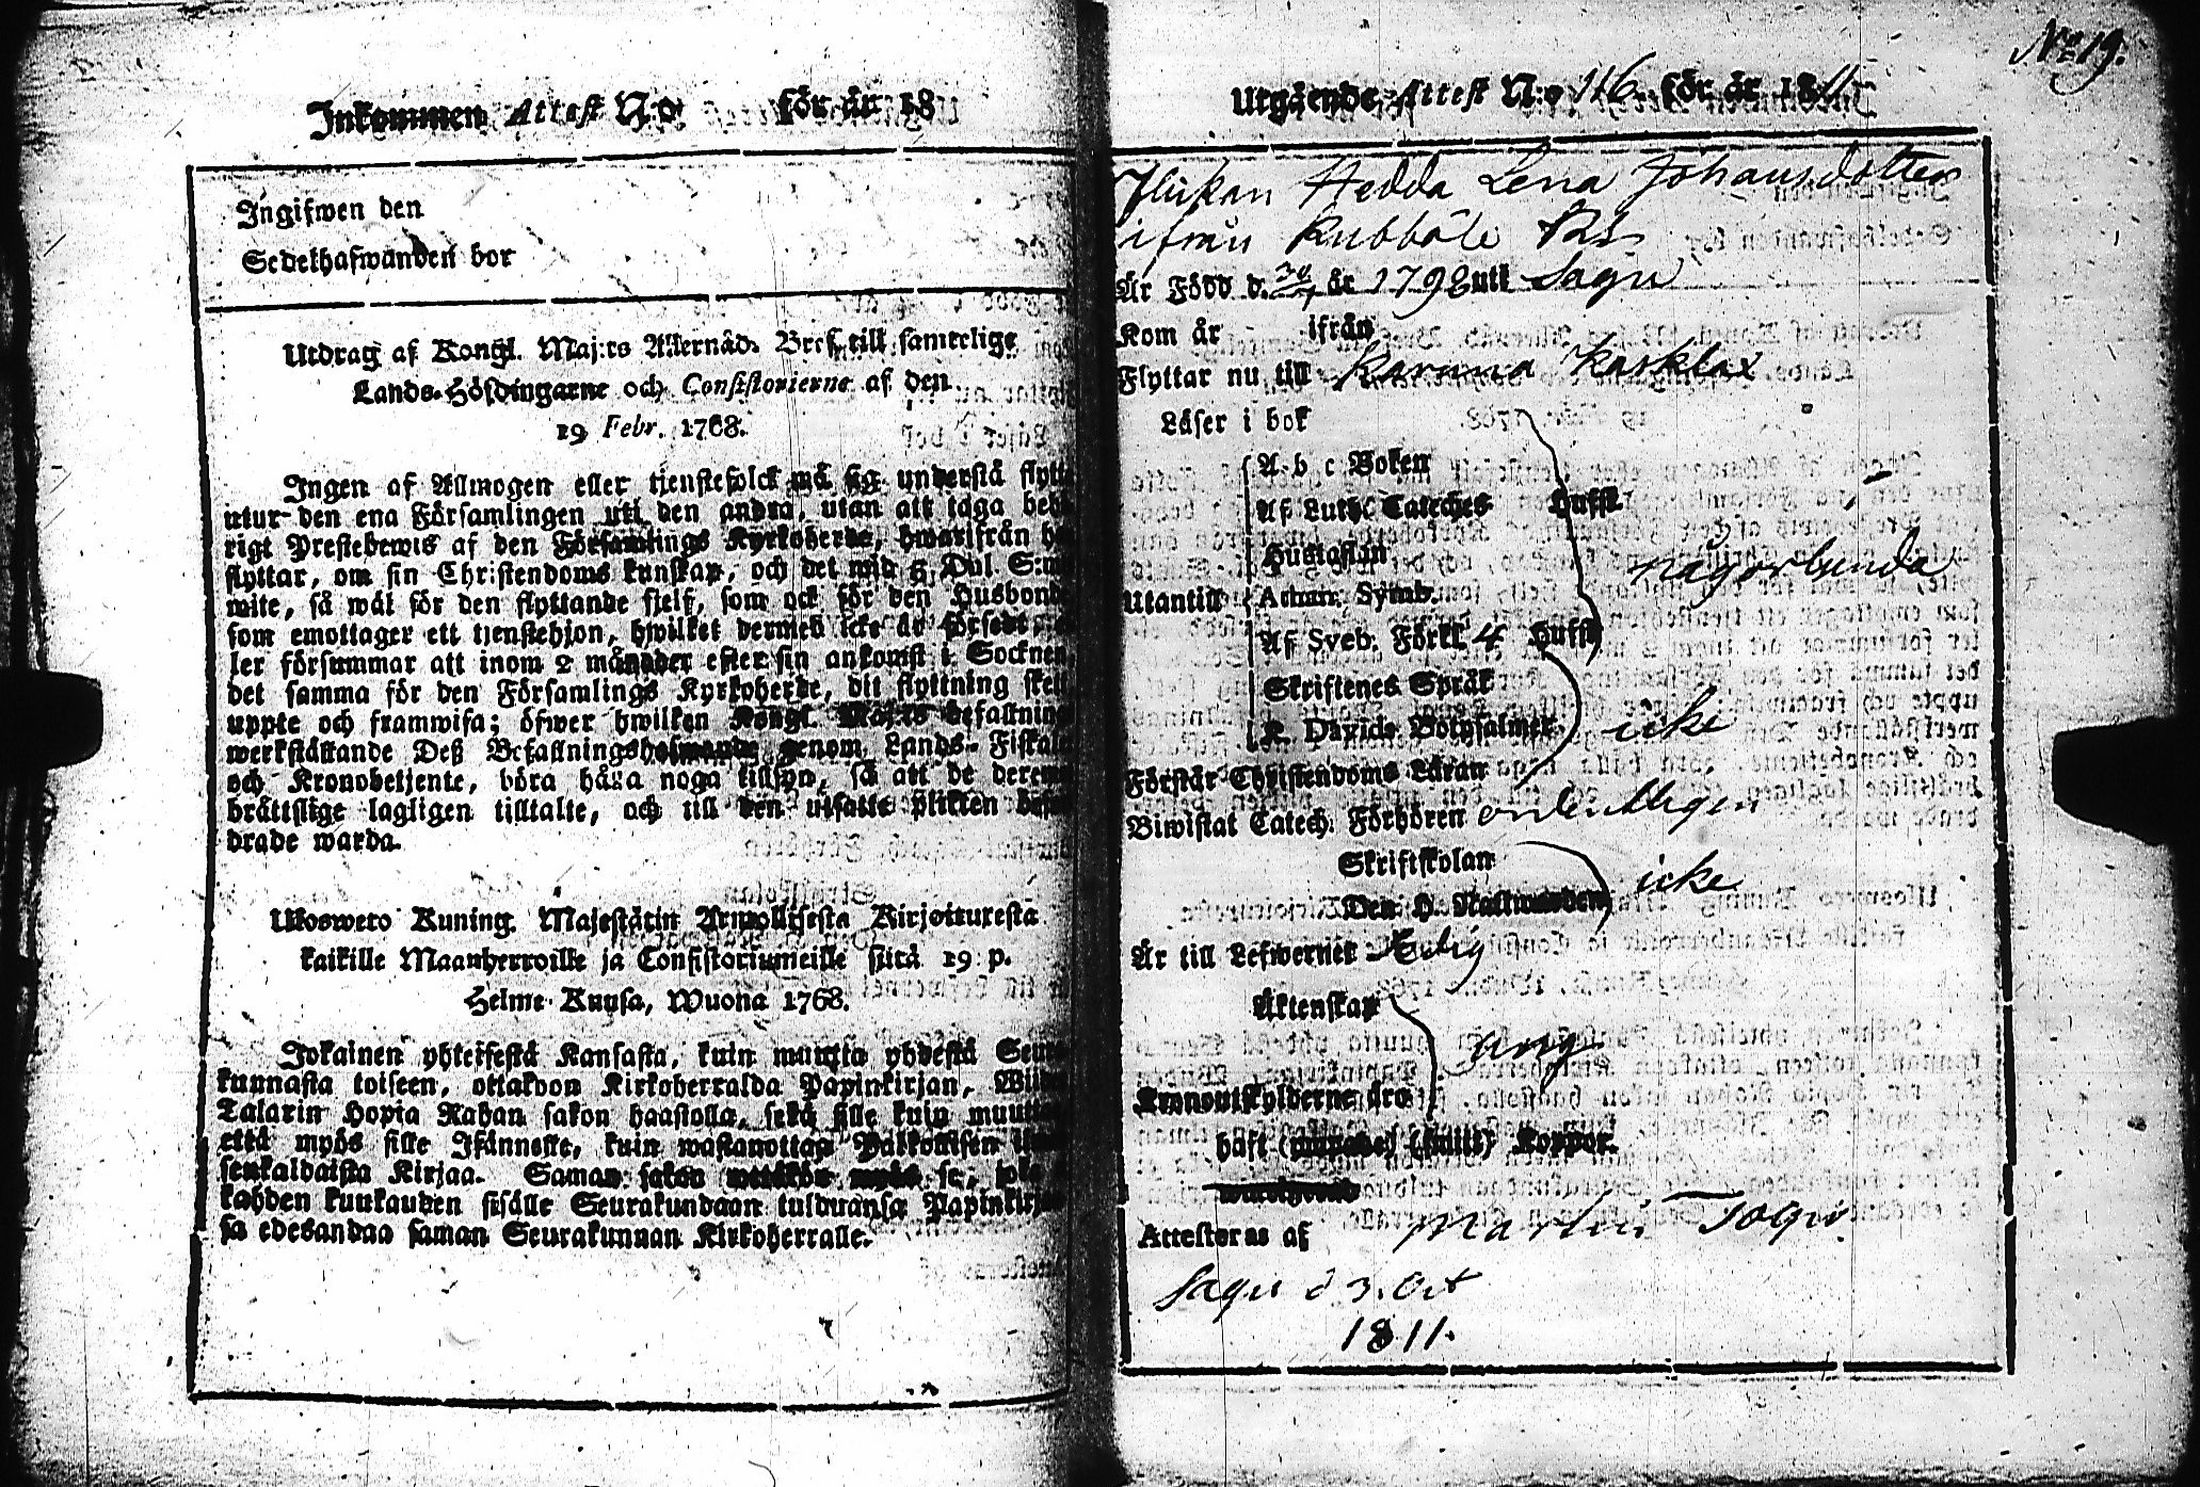 Inkommen Attest N:o för år 18
Ingifwen den
Sedelhafwanden bor
Utdrag af Kongl. Maj:ts Allernåd. Bref till samtelige
Lands-Höfdingarne och Consistorierne af den
19 Febr. 1768.
Ingen af Allmogen eller tjenstefolck må sig understå flytt
utur den ena Församlingen uti den andra, utan att taga beh
rigt Prestebewis af den Församlings Kyrkoherde, hwarifrån h
flyttar, om sin Christendoms kunskap, och det wid 5 Dal. S:m
wite, så wäl för den flyttande sjelf, som ock för den Husbond
som emottager ett tjenstehjon, hwilket dermed icke är försedt
ler försummar att inom 2 månader efter sin ankomst i Socknen
det samma för den Församlings Kyrkoherde, dit flyttning sket
uppte och framwisa; öfwer hwilken Kongl. Maj:ts befallning
werkställande Deß Befallningshafwande genom Lands-Fiskale
och Kronobetjente, böra hafa noga tillsyn, så att de derem
bråttslige lagligen tilltalte, och till den utsatte plikten bef
drade warda.
Ulosweto Kuning. Majestätin Armollisesta Kirjoituxesta
kaikille Maanherroille ja Consistoriumeille siitä 19 p.
Helme Kuusa, Wuona 1768.
Jokainen yhteisestä Kansasta, kuin muutta yhdestä Seu
kunnasta toiseen, ottakoon Kirkoherralda Papinkirjan, Wii
Talarin Hopia Rahan sakon haastolla, sekä sille kuin muutt
että myös sille Isännälle, kuin wastanottap Palkollisen
senkaldaista Kirjaa. Saman sakon wetäkön myös se, joka
kahden kuukauden sisälle Seurakundaan tulduansa Papinkirja
sa edesandaa saman Seurakunnan Kirkoherralle.
No 19.
Utgående Attest N:o 116. för år 1811
Flickan Hedda Lena Johansdotter
ifrån Kubböle
Är Född d. år 1798 uti Sagu
Kom år ifrån
Flyttar nu till Karuna Karklax
Läser i bok
A b c Boken
Af Luth. Cateches Hufst.
Hustaflan
någorlunda
Utantill Athan. Symb.
Af Sveb. Förkl. 4 Hufst.
Skriftenes Språk
K. Davids Botpsalmer icke
Förstår Christendoms Läran
Biwistat Catech. Förhören ordentligen
Skriftskolan
icke
Den H. Nattwarden
Är till Lefwernet Sedig
Äktenskap
ung
Kronoutskylderne äro
haft Koppor.
Attesteras af Martin Togu.
Sagu d 3. Oct
1811.